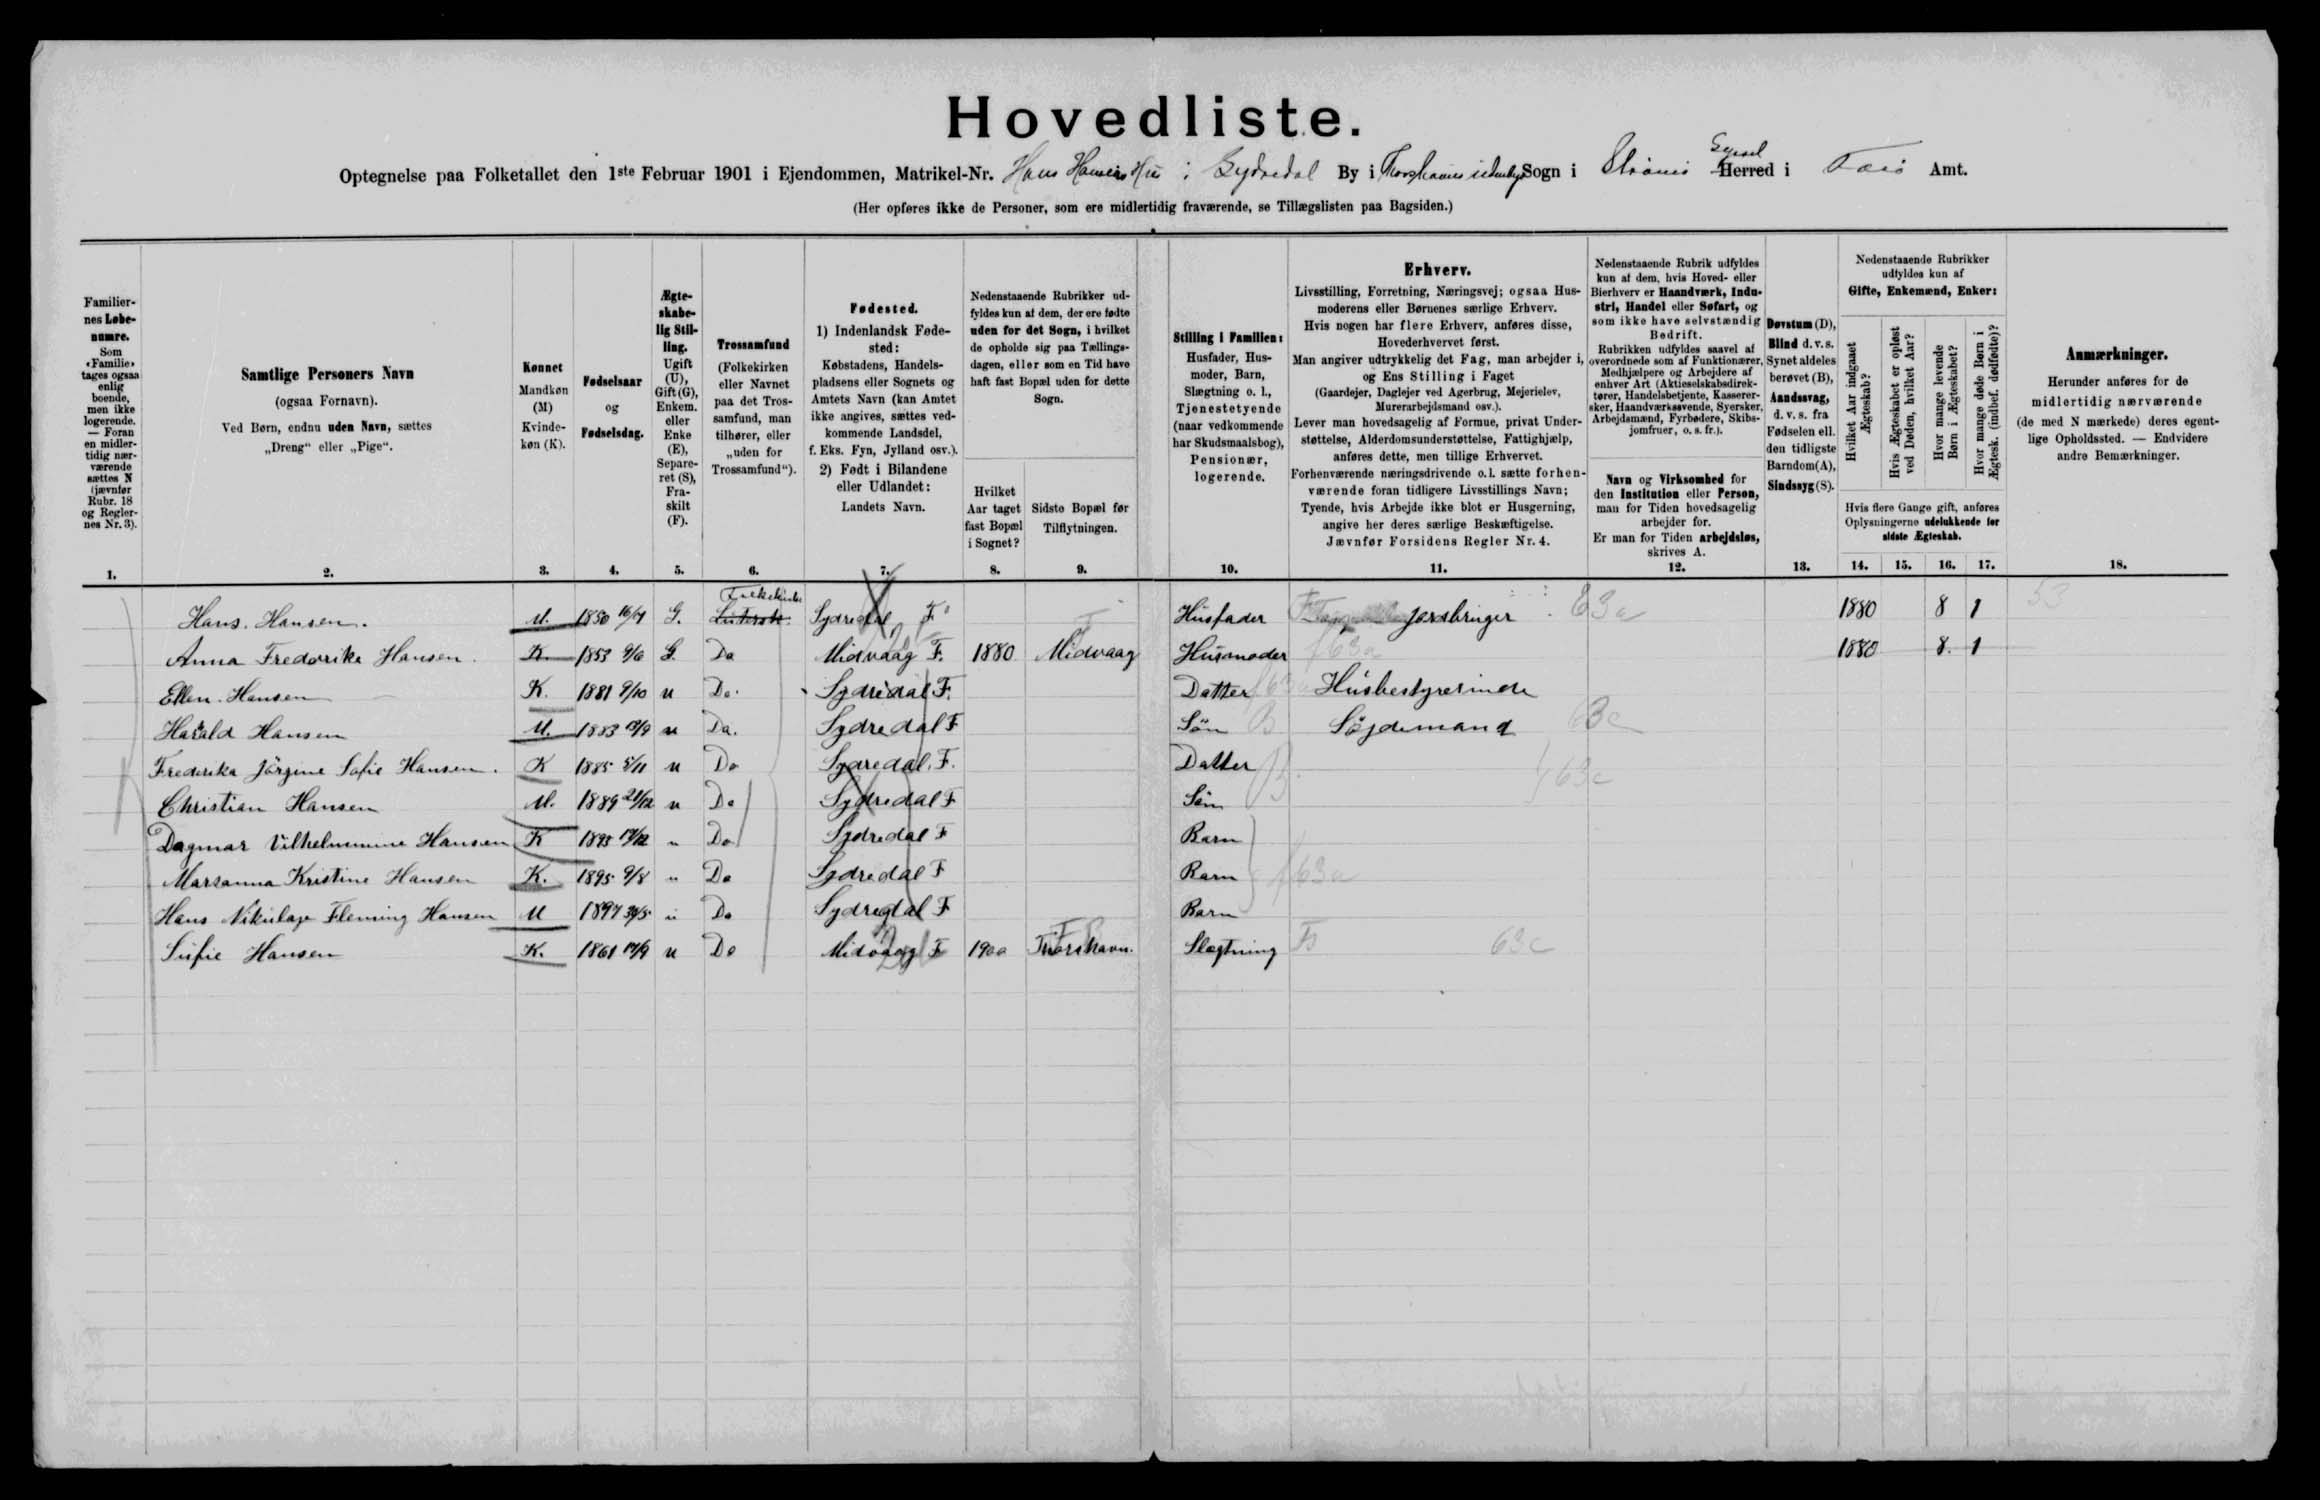 Hovedliste.
Optegnelse paa Folketallet den 1ste Februar 1901 i Ejendommen, Matrikel-Nr. Hans Hansens Hus i Sydredal By i Thorshavns udenbys Sogn i Strömö Syssel Herred i Færö Amt.
(Her opføres ikke de Personer, som ere midlertidig fraværende, se Tillægslisten paa Bagsiden.)
Familiernes Løbenumre. Som «Familie» tages ogsaa enlig boende, men ikke logerende. — Foran en midlertidig nærværende sættes N (jævnfør Rubr. 18 og Reglernes Nr. 3).
Samtlige Personers Navn (ogsaa Fornavn). Ved Børn, endnu uden Navn, sættes „Dreng“ eller „Pige“.
Kønnet Mandkøn (M) Kvindekøn (K).
Fødselsaar og Fødselsdag.
Ægteskabelig Stilling. Ugift (U), Gift (G), Enkem. eller Enke (E), Separeret (S), Fraskilt (F).
Trossamfund (Folkekirken eller Navnet paa det Trossamfund, man tilhører, eller „uden for Trossamfund“).
Fødested. 1) Indenlandsk Fødested: Købstadens, Handelspladsens eller Sognets og Amtets Navn (kan Amtet ikke angives, sættes vedkommende Landsdel, f. Eks. Fyn, Jylland osv.). 2) Født i Bilandene eller Udlandet: Landets Navn.
Nedenstaaende Rubrikker udfyldes kun af dem, der ere fødte uden for det Sogn, i hvilket de opholde sig paa Tællingsdagen, eller som en Tid have haft fast Bopæl uden for dette Sogn.
Hvilket Aar taget fast Bopæl i Sognet?
Sidste Bopæl før Tilflytningen.
Stilling i Familien: Husfader, Husmoder, Barn, Slægtning o. l., Tjenestetyende (naar vedkommende har Skudsmaalsbog), Pensionær, logerende.
Erhverv.
Livsstilling, Forretning, Næringsvej; ogsaa Husmoderens eller Børnenes særlige Erhverv.
Hvis nogen har flere Erhverv, anføres disse, Hovederhvervet først.
Man angiver udtrykkelig det Fag, man arbejder i, og Ens Stilling i Faget
(Gaardejer, Daglejer ved Agerbrug, Mejerielev, Murerarbejdsmand osv.).
Lever man hovedsagelig af Formue, privat Understøttelse, Alderdomsunderstøttelse, Fattighjælp, anføres dette, men tillige Erhvervet.
Forhenværende næringsdrivende o. l. sætte forhenværende foran tidligere Livsstillings Navn; Tyende, hvis Arbejde ikke blot er Husgerning, angive her deres særlige Beskæftigelse.
Jævnfør Forsidens Regler Nr. 4.
Nedenstaaende Rubrik udfyldes kun af dem, hvis Hoved- eller Bierhverv er Haandværk, Industri, Handel eller Søfart, og som ikke have selvstændig Bedrift.
Rubrikken udfyldes saavel af overordnede som af Funktionærer, Medhjælpere og Arbejdere af enhver Art (Aktieselskabsdirektører, Handelsbetjente, Kasserersker, Haandværkssvende, Syersker, Arbejdsmænd, Fyrbødere, Skibsjomfruer, o. s. fr.).
Navn og Virksomhed for den Institution eller Person, man for Tiden hovedsagelig arbejder for.
Er man for Tiden arbejdsløs, skrives A.
Døvstum (D), Blind d. v. s. Synet aldeles berøvet (B), Aandssvag, d. v. s. fra Fødselen ell. den tidligste Barndom (A), Sindssyg (S).
Nedenstaaende Rubrikker udfyldes kun af Gifte, Enkemænd, Enker:
Hvilket Aar indgaaet Ægteskab?
Hvis Ægteskabet er opløst ved Døden, hvilket Aar?
Hvor mange levende Børn i Ægteskabet?
Hvor mange døde Børn i Ægtesk. (indbef. dødfødte)?
Hvis flere Gange gift, anføres Oplysningerne udelukkende for sidste Ægteskab.
Anmærkninger.
Herunder anføres for de midlertidig nærværende (de med N mærkede) deres egentlige Opholdssted. — Endvidere andre Bemærkninger.
1. 2. 3. 4. 5. 6. 7. 8. 9. 10. 11. 12. 13. 14. 15. 16. 17. 18.
Hans. Hansen. M. 1850 16/4 G. Folkekirken Luthersk. Sydredal F Husfader Jordbruger 63a 1880 8 1 53
Anna Fredorike Hansen. K 1853 9/6 G. Do Midvaag F. 1880 Midvaag Husmoder f63a 1880 8. 1
Ellen Hansen K. 1881 9/10 u Do. Sydredal F. Datter f63a Husbestyrerinde
Harald Hansen M. 1883 13/9 u Do. Sydredal F Sön B Söjdemand 63c
Frederika Jörgine Sofie Hansen. K 1885 5/11 u Do Sydredal. F. Datter
Christian Hansen M. 1889 21/12 u Do Sydredal F Sön B f63c
Dagmar Vilhelmmine Hansen K 1893 17/12 " Do Sydredal F Barn
Marsanna Kristine Hansen K. 1895 9/8 " Do Sydredal F Barn f63a
Hans Nikulaje Fleming Hansen M 1897 30/5 " Do Sydredal F Barn
Sufie Hansen K. 1861 17/9 u Do Midvaag F 1900 Thorshavn. Slægtning B 63c